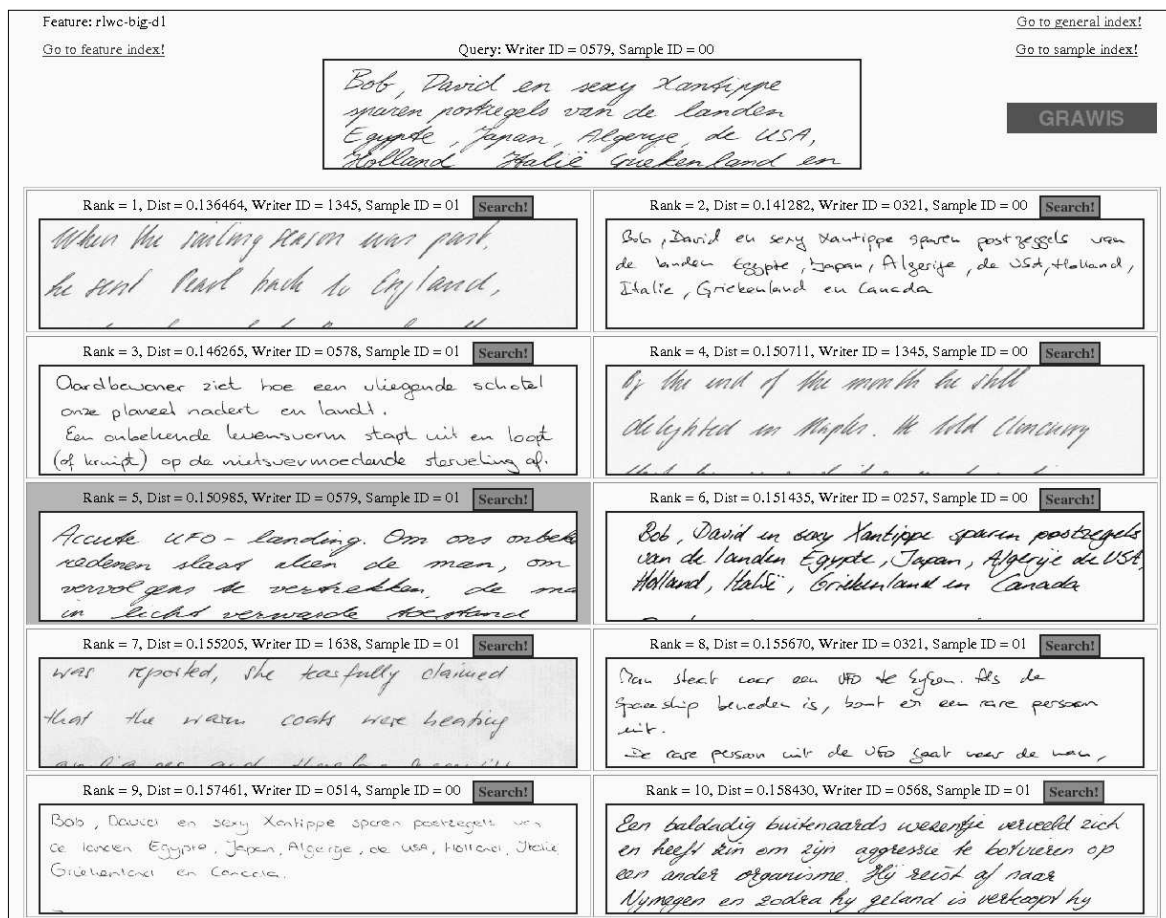 Feature: rlwc-big-d1
Go to general index!
Go to feature index!
Query: Writer ID = 0579, Sample ID = 00
Go to sample index!
Bob, David en sexy Xantippe
sparen postzegels van de landen
Egypte, Japan, Algerije, de USA,
Holland Italië Griekenland en
GRAWIS
Rank = 1, Dist = 0.136464, Writer ID = 1345, Sample ID = 01 Search!
When the sailing season was past,
he sent Pearl back to England,
Rank = 2, Dist = 0.141282, Writer ID = 0321, Sample ID = 00 Search!
Bob, David en sexy Xantippe sparen postzeggels van
de landen Egypte, Japan, Algerije, de USA, Holland,
Italie, Griekenland en Canada
Rank = 3, Dist = 0.146265, Writer ID = 0578, Sample ID = 01 Search!
Aardbewoner ziet hoe een vliegende schotel
onze planeet nadert en landt.
Een onbekende levensvorm stapt uit en loopt
(of kruipt) op de nietsvermoedende sterveling af.
Rank = 4, Dist = 0.150711, Writer ID = 1345, Sample ID = 00 Search!
By the end of the month he still
delighted in Naples. He told Clancurry
Rank = 5, Dist = 0.150985, Writer ID = 0579, Sample ID = 01 Search!
Accute UFO-landing. Om ons onbeke
redenen slaat alien de man, om
vervolgens te vertrekken, de ma
in licht verwarde toestand
Rank = 6, Dist = 0.151435, Writer ID = 0257, Sample ID = 00 Search!
Bob, David en sexy Xantippe sparen postzegels
van de landen Egypte, Japan, Algerije de USA,
Holland, Italië, Griekenland en Canada
Rank = 7, Dist = 0.155205, Writer ID = 1638, Sample ID = 01 Search!
was reported, she tearfully claimed
that the warm coats were heating
Rank = 8, Dist = 0.155670, Writer ID = 0321, Sample ID = 01 Search!
Man staat naar een UFO te kijken. Als de
spaceship beneden is, komt er een rare persoon
uit.
De rare persoon uit de UFO gaat naar de man,
Rank = 9, Dist = 0.157461, Writer ID = 0514, Sample ID = 00 Search!
Bob, David en sexy Xantippe sparen postzegels van
de landen Egypte, Japan, Algerije, de USA, Holland, Italie
Griekenland en Canada.
Rank = 10, Dist = 0.158430, Writer ID = 0568, Sample ID = 01 Search!
Een baldadig buitenaards wezentje verveeld zich
en heeft zin om zijn aggressie te botvieren op
een ander organisme. Hij reist af naar
Nymegen en zodra hy geland is verkoopt hy